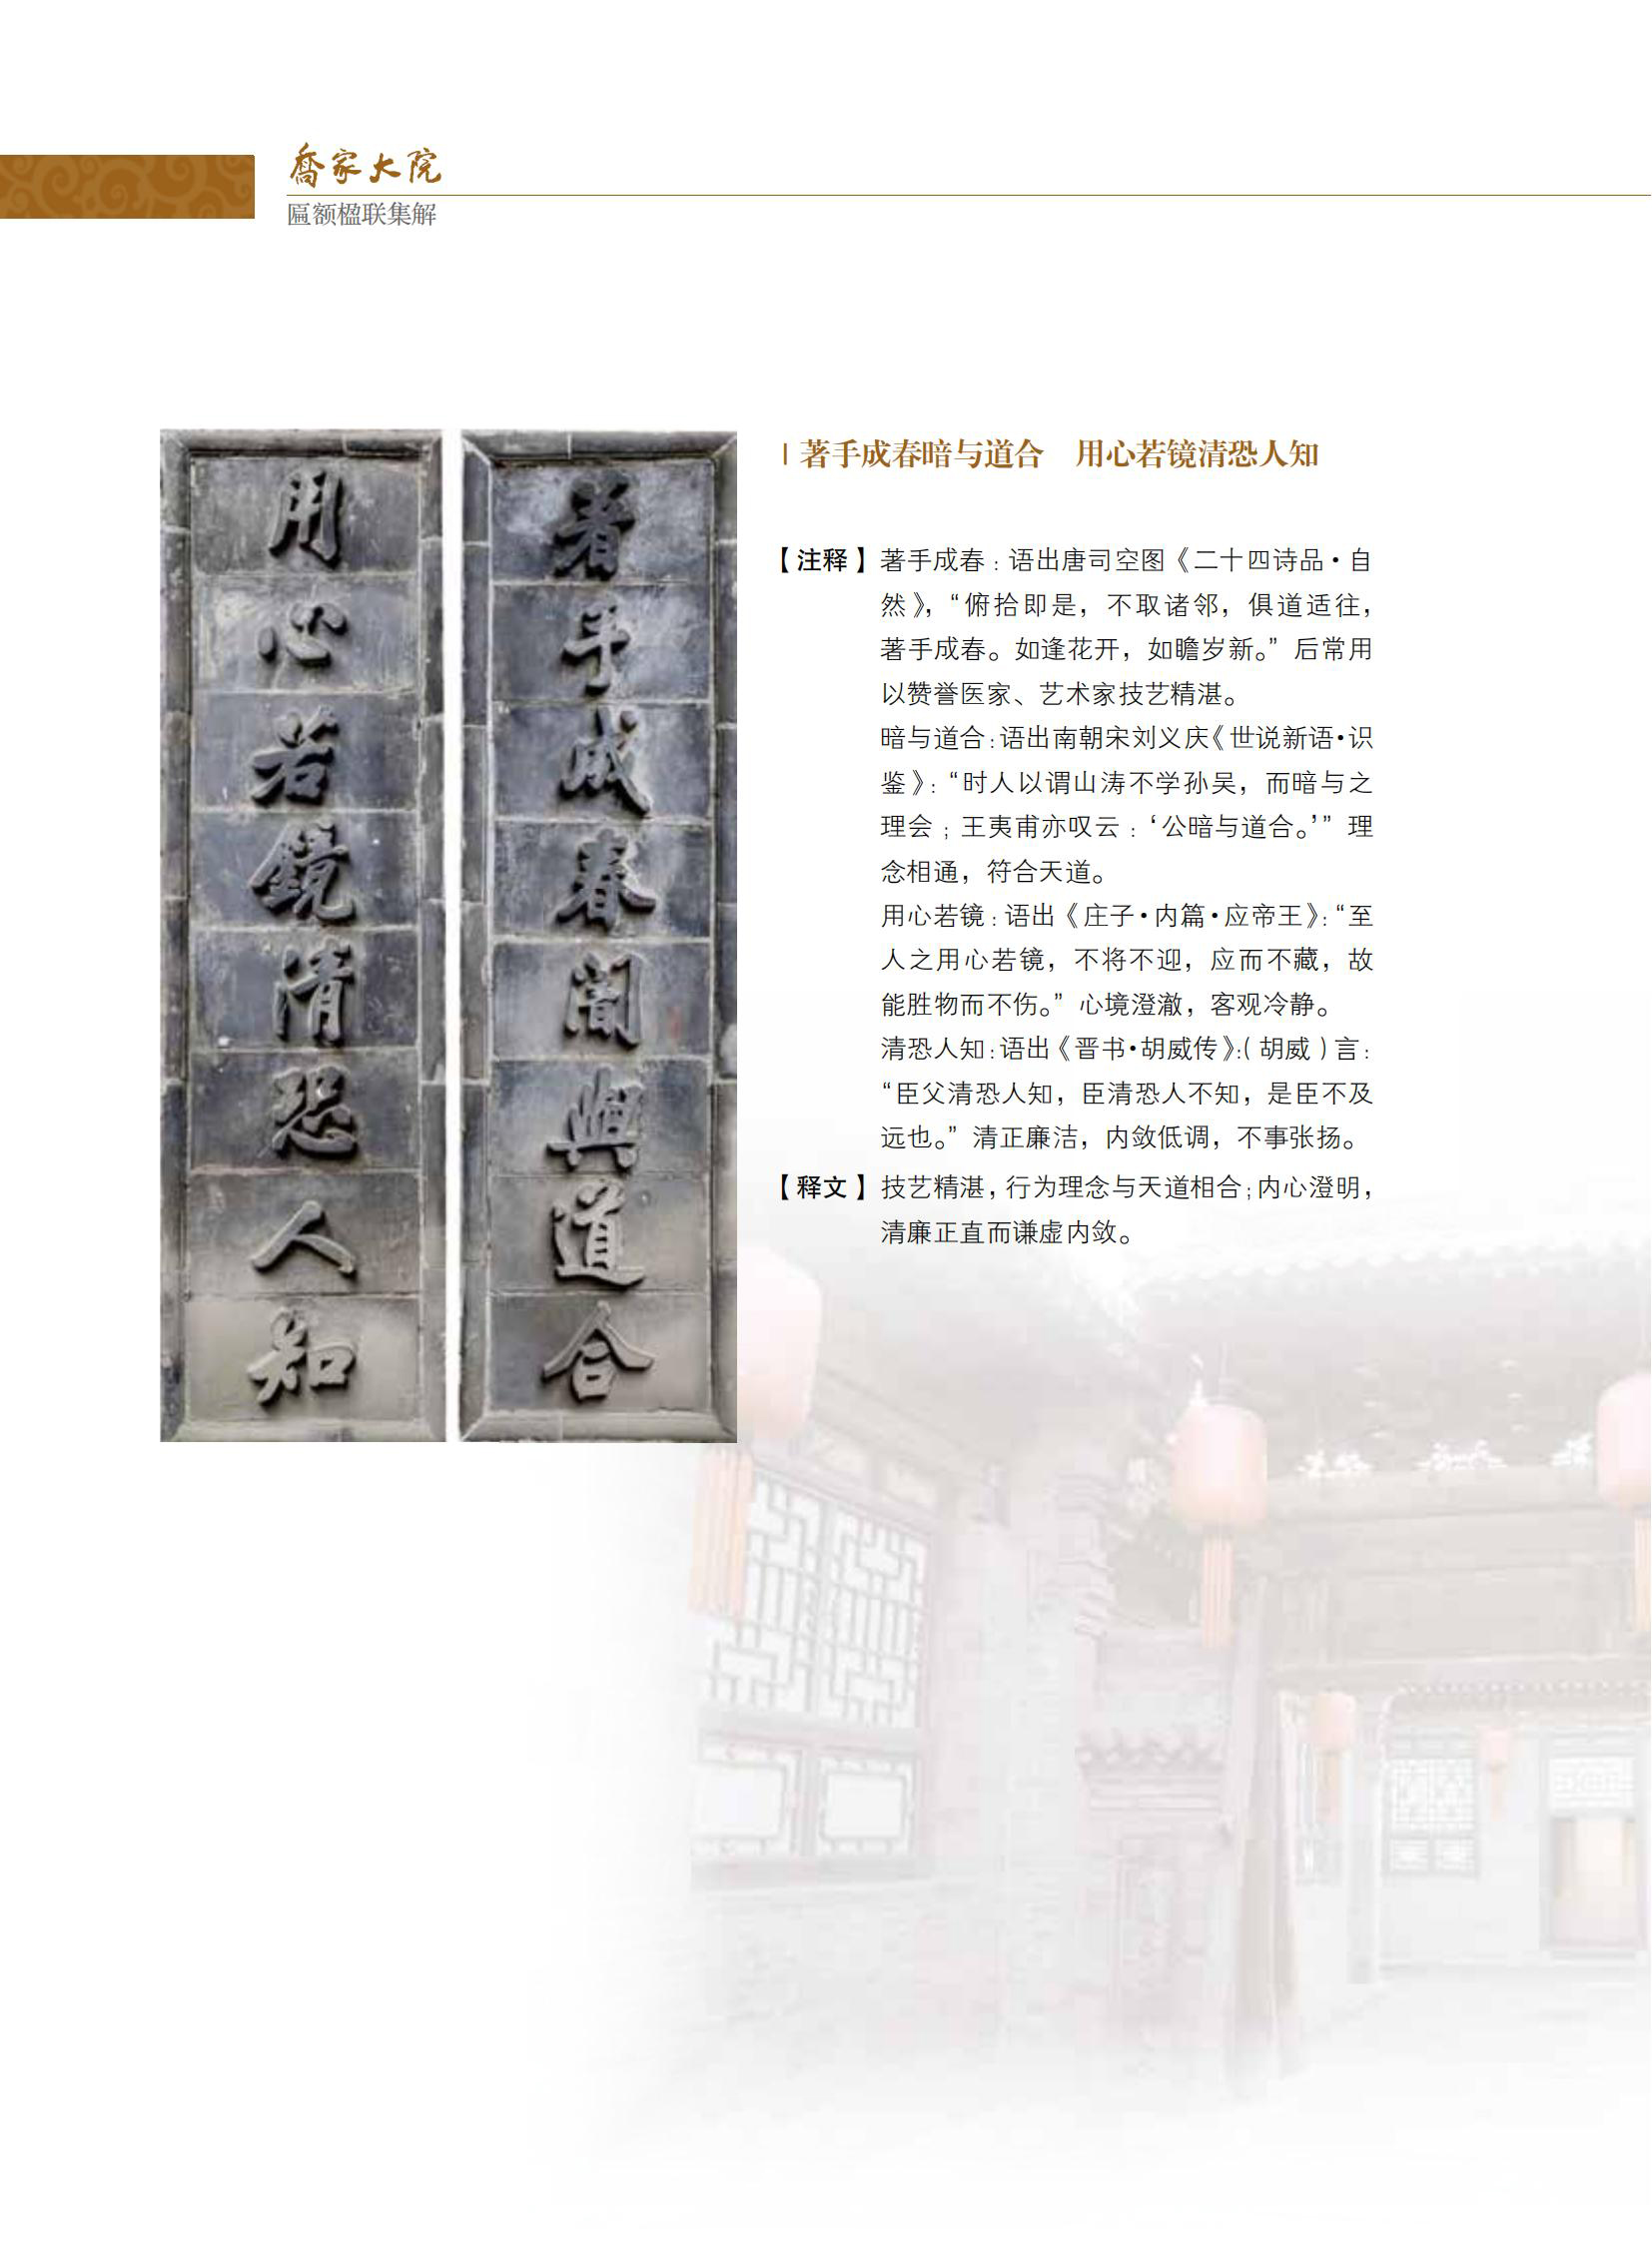 喬家大院
匾额楹联集解
著手成春暗与道合　用心若镜清恐人知
【注释】著手成春：语出唐司空图《二十四诗品·自
然》，“俯拾即是，不取诸邻，俱道适往，
著手成春。如逢花开，如瞻岁新。”后常用
以赞誉医家、艺术家技艺精湛。
暗与道合：语出南朝宋刘义庆《世说新语·识
鉴》：“时人以谓山涛不学孙吴，而暗与之
理会；王夷甫亦叹云：‘公暗与道合。’”理
念相通，符合天道。
用心若镜：语出《庄子·内篇·应帝王》：“至
人之用心若镜，不将不迎，应而不藏，故
能胜物而不伤。”心境澄澈，客观冷静。
清恐人知：语出《晋书·胡威传》：（胡威）言：
“臣父清恐人知，臣清恐人不知，是臣不及
远也。”清正廉洁，内敛低调，不事张扬。
【释文】技艺精湛，行为理念与天道相合；内心澄明，
清廉正直而谦虚内敛。
着手成春闇與道合
用心若鏡清恐人知